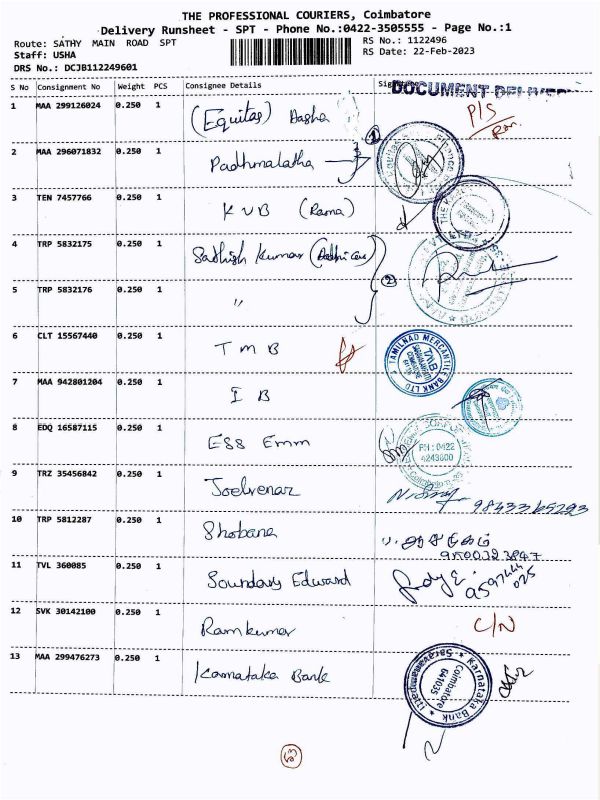 THE PROFESSIONAL COURIERS, Coimbatore
Delivery Runsheet - SPT - Phone No.:0422-3505555 - Page No.:1
Route: SATHY MAIN ROAD SPT
RS No.: 1122496
Staff: USHA
RS Date: 22-Feb-2023
DRS No.: DCJB112249601
S No Consignment No Weight PCS Consignee Details
DOCUMENT
1 MAA 299126024 0.250 1 (Equitas)
P/S
2 MAA 296071832 0.250 1 Padhmalatha 1
3 TEN 7457766 0.250 1 KVB (Rama)
4 TRP 5832175 0.250 1 Sathish Kumar
2
5 TRP 5832176 0.250 1 "
6 CLT 15567440 0.250 1 TMB
TAMILNAD MERCANTILE BANK LTD
TMB
7 MAA 942801204 0.250 1 IB
8 EDQ 16587115 0.250 1 ESS Emm
PH : 0422
4243800
Coimbatore
9 TRZ 35456842 0.250 1
10 TRP 5812287 0.250 1 Shobana
11 TVL 360085 0.250 1 Edward
12 SVK 30142100 0.250 1 Ramkumar C/N
13 MAA 299476273 0.250 1 Karnataka Bank
Karnataka Bank
Saravanampatti
Coimbatore
641035